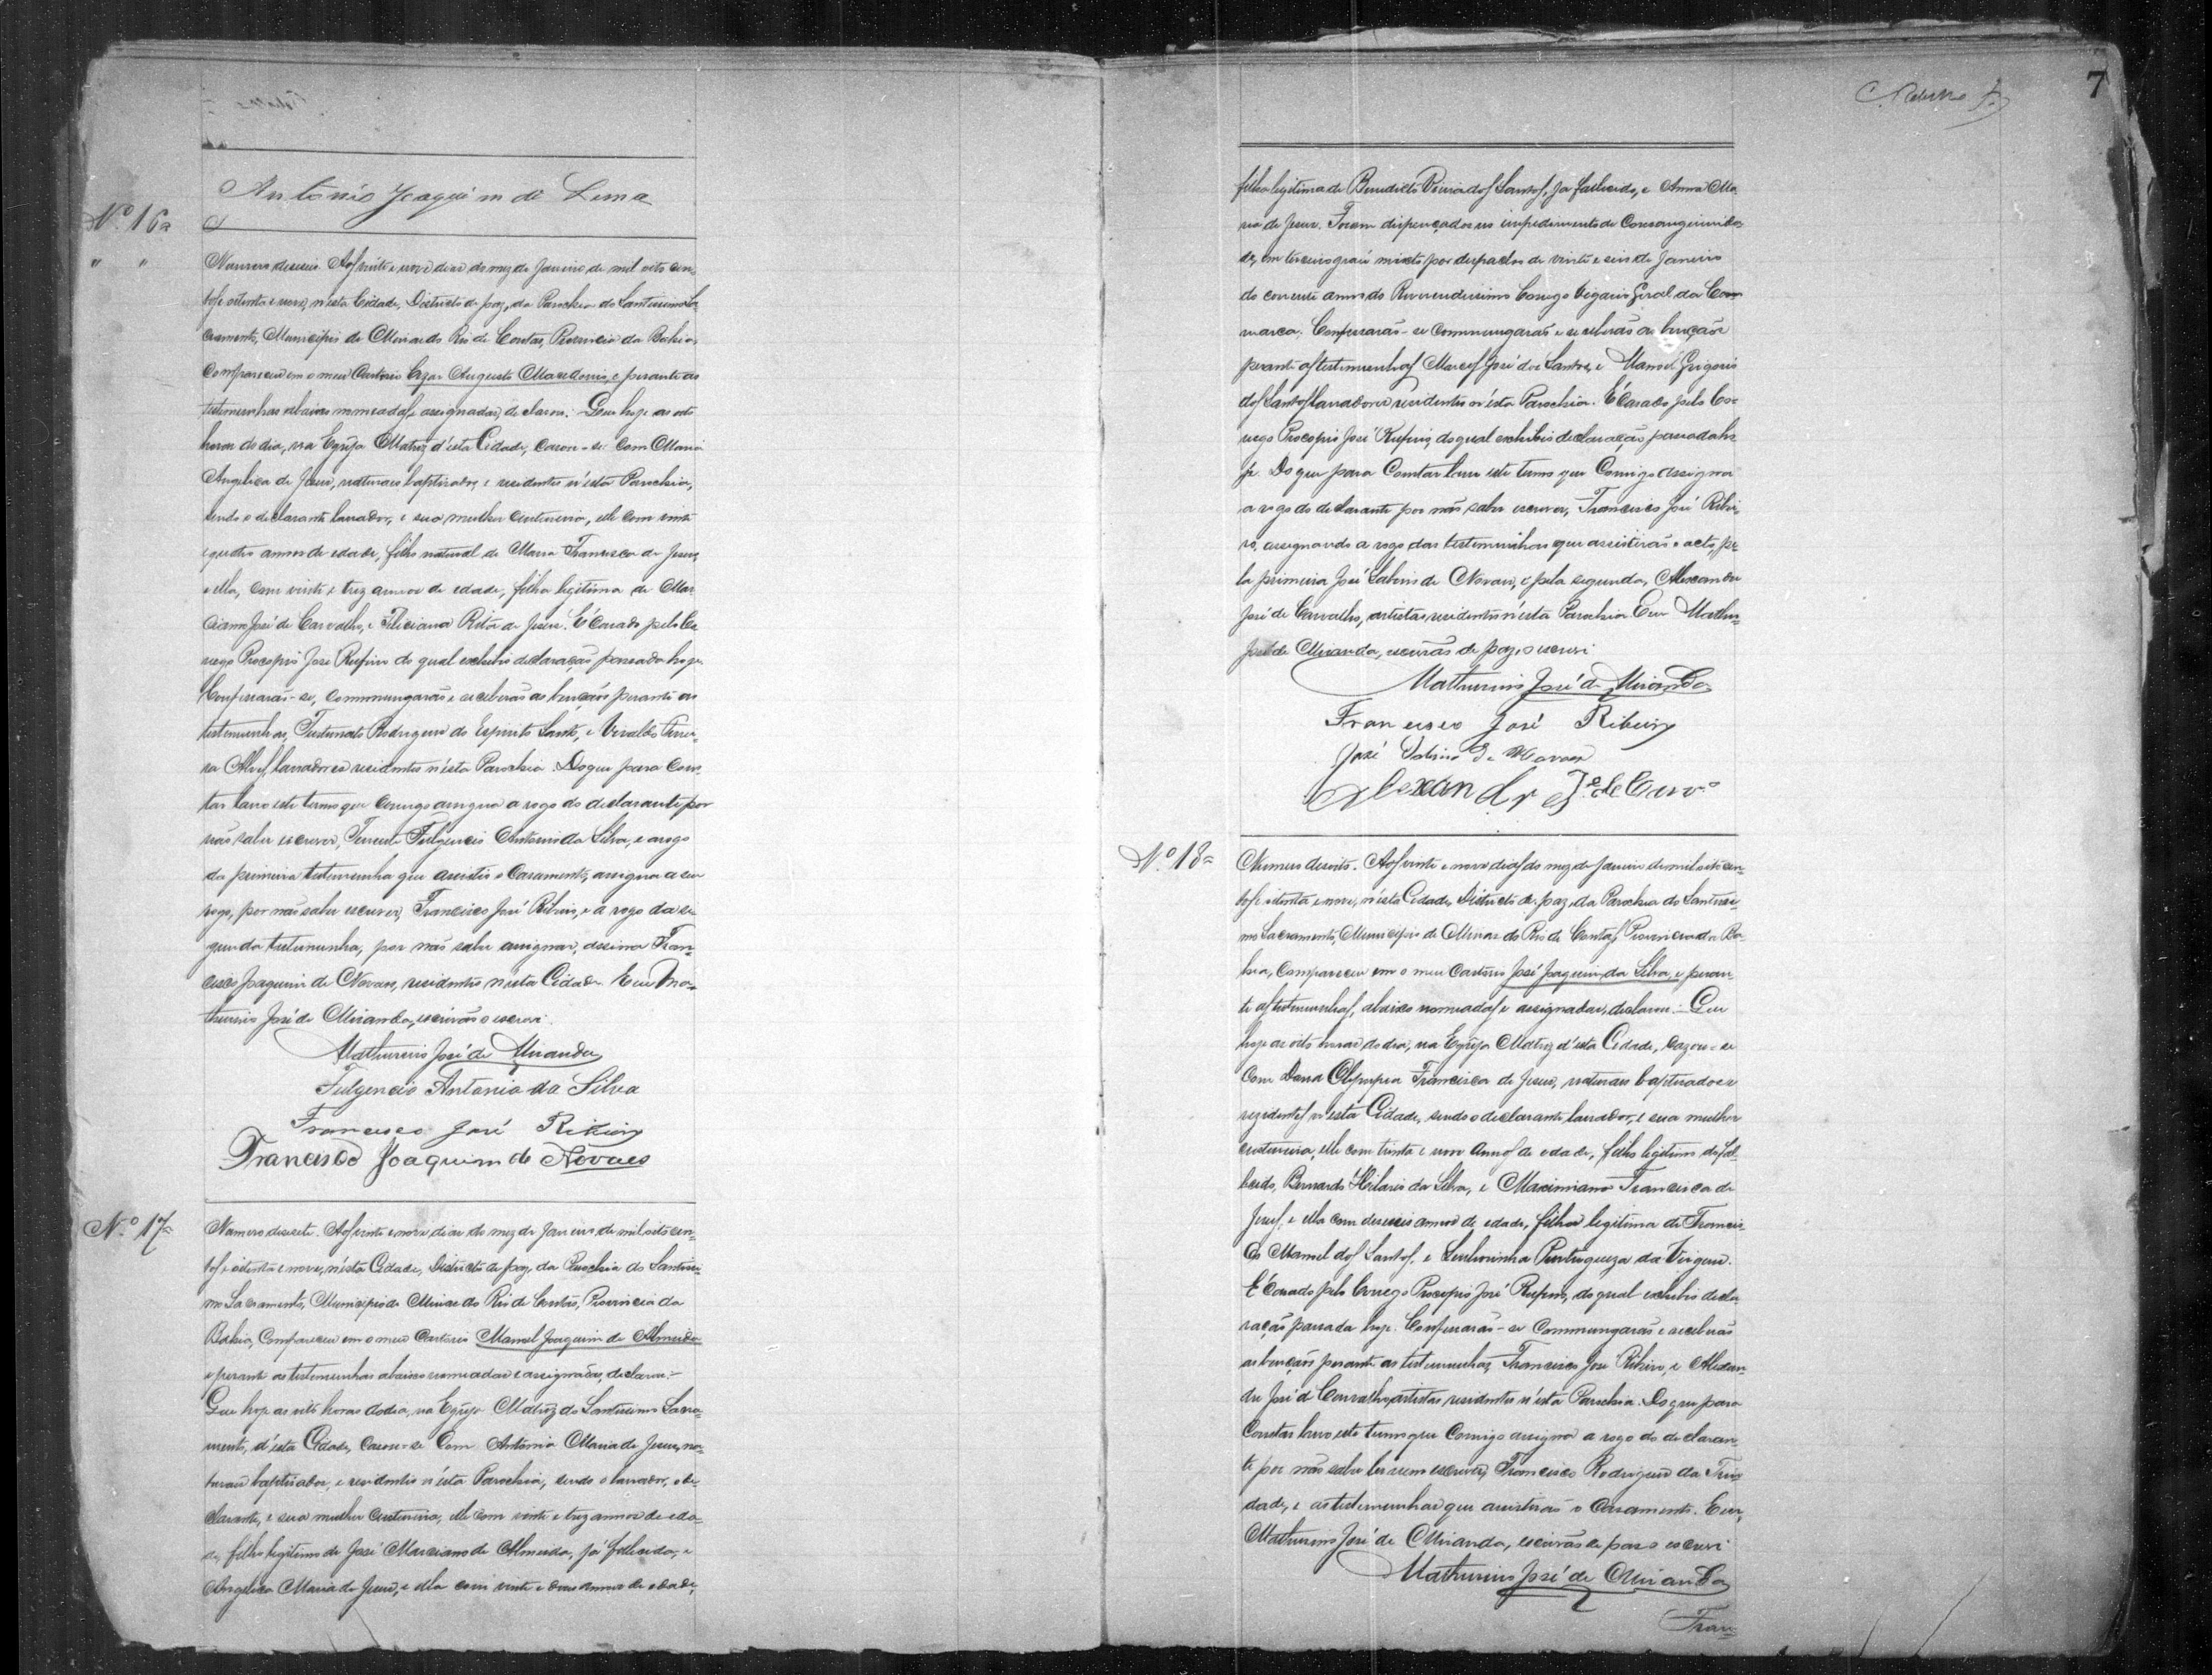 Antonio Joaquim de Lima
Nº 16
" "
Numero deseseis. Aos vinte e nove dias do mez de Janeiro de mil oito cen-
tos e oitenta e nove, n'esta Cidade, Districto de paz, da Parochia do Santissimo Sa-
cramento, Municipio de Minas do Rio de Contas, Provincia da Bahia,
compareceu em o meu Cartorio Cezar Augusto Macedonio, e perante as
testemunhas abaixo nomeadas e assignadas, declarou: Que hoje as oito
horas do dia, na Egreja Matriz d'esta Cidade, casou-se com Maria
Angelica de Jesus, naturaes baptisados, e residentes n'esta Parochia,
sendo o declarante lavrador, e sua mulher costureira, elle com vinte
e quatro annos de edade, filho natural de Maria Francisca de Jesus,
e ella, com vinte e trez annos de edade, filha legitima de Mar-
ciano José de Carvalho, e Feliciana Rita de Jesus. É Casado pelo Co-
nego Procopio José Rufino do qual exhibio declaração passada hoje.
Confessarão-se, commungarão e receberão as bençãos perante as
testemunhas, Fortunato Rodrigues do Espirito Santo, e Ferrei-
ra Alves lavradores residentes n'esta Parochia. Do que para cons-
tar lavro este termo que comigo assigna a rogo do declarante por
não saber escrever, Tenente Fulgencio Antonio da Silva, e a rogo
da primeira testemunha que assistio o casamento, assigna a seu
rogo, por não saber escrever, Francisco José Ribeiro, e a rogo da se-
gunda testemunha, por não saber assignar, assigna Fran-
cisco Joaquim de Novaes, residentes n'esta Cidade. Eu Ma-
thurino José de Miranda, escrivão o escrevi.
Mathurino José de Miranda
Fulgencio Antonio da Silva
Francisco José Ribeiro
Francisco Joaquim de Novaes
Nº 17
Numero desesete. Aos vinte e nove dias do mez de Janeiro de mil oito cen-
tos e oitenta e nove, n'esta Cidade, Districto de paz, da Parochia do Santissi-
mo Sacramento, Municipio de Minas do Rio de Contas, Provincia da
Bahia, compareceu em o meu Cartorio Manoel Joaquim de Almeida
e perante as testemunhas abaixo nomeadas e assignadas, declarou:-
Que hoje as oito horas do dia, na Egreja Matriz do Santissimo Sacra-
mento, d'esta Cidade, casou-se com Antonia Maria de Jesus, na-
turaes baptisados, e residentes n'esta Parochia, sendo o lavrador, o de-
clarante, e sua mulher costureira, elle com vinte e trez annos de eda-
de, filho legitimo de José Marciano de Almeida, já fallecido, e
Angelica Maria de Jesus, e ella com vinte e annos de edade,
7
filha legitima de Benedicto Vieira dos Santos, ja fallecido, e Anna Ma-
ria de Jesus. Foram dispençados no impedimento de Consanguinida-
de, em terceiro gráu mixto por despacho de vinte e seis de Janeiro
do corrente anno do Reverendissimo Conego Vigario Geral da Com-
marca. Confessarão-se commungarão e receberão as bençãos
perante as testemunhas José dos Santos, e Manoel Grigorio
dos Santos lavradores residentes n'esta Parochia. É Casado pelo Co-
nego Procopio José Rufino, do qual exhibio declaração passada ho-
je. Do que para Constar lavro este termo que Comigo assigna
a rogo do declarante por não saber escrever, Francisco José Ribei-
ro, assignando a rogo das testemunhas que assistirão o acto, pe-
la primeira José Sabino de Novaes, e pela segunda, Alexandre
José de Carvalho, artistas residentes n'esta Parochia Eu Mathu-
José de Miranda, escrivão de paz, o escrevi.
Mathurino José de Miranda
Francisco José Ribeiro
José Sabino de Novaes
Alexandre Je. de Carvo.
Nº 18
Numero desoito. Aos vinte e nove dias do mez de Janeiro de mil oito cen-
tos e oitenta e nove, n'esta Cidade, Districto de paz, da Parochia do Santissi-
mo Sacramento, Municipio de Minas do Rio de Contas, Provincia da Ba-
hia, compareceu em o meu Cartorio José Joaquim da Silva, e peran-
te as testemunhas, abaixo nomeadas e assignadas, declarou:- Que
hoje as oito horas do dia, na Egreja Matriz d'esta Cidade, cazou-se
com Dona Olympia Francisca de Jesus, naturaes baptisados e
rezidentes n'esta Cidade, sendo o declarante lavrador, e sua mulher
costureira, elle com trinta e um annos de edade, filho legitimo do fal-
lecido, Bernardo Hilario da Silva, e Maximiana Francisca de
Jesus, e ella com deseseis annos de edade, filha legitima de Francis-
co Manoel dos Santos, e Senhorinha Portugueza da Virgem.
É Casado pelo Conego Procopio José Rufino, do qual exhibio decla-
ração passada hoje. Confessarão-se Commungarão e receberão
as bençãos perante as testemunhas, Francisco José Ribeiro, e Alexan-
dre José de Carvalho artistas residentes n'esta Parochia. Do que para
Constar lavro este termo que Comigo assigna a rogo do declaran-
te por não saber ler nem escrever, Francisco Rodrigues da Trin-
dade, e as testemunhas que assistirão o Casamento. Eu,
Mathurino José de Miranda, escrivão de paz o escrevi
Mathurino José de Miranda
Fran-